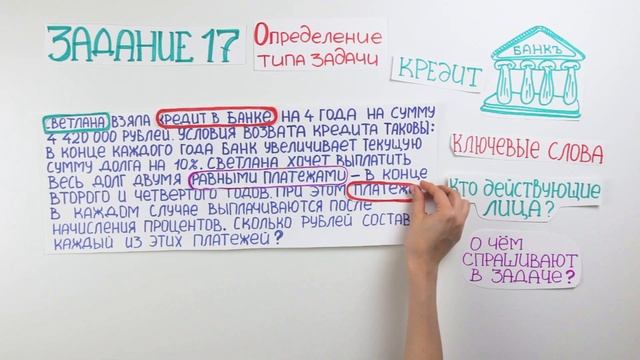 ЗАДАНИЕ 17
ОПРЕДЕЛЕНИЕ
ТИПА ЗАДАЧИ
КРЕДИТ
БАНКЪ
СВЕТЛАНА ВЗЯЛА КРЕДИТ В БАНКЕ НА 4 ГОДА НА СУММУ
4 420 000 РУБЛЕЙ. УСЛОВИЯ ВОЗВАТА КРЕДИТА ТАКОВЫ:
В КОНЦЕ КАЖДОГО ГОДА БАНК УВЕЛИЧИВАЕТ ТЕКУЩУЮ
СУММУ ДОЛГА НА 10%. СВЕТЛАНА ХОЧЕТ ВЫПЛАТИТЬ
ВЕСЬ ДОЛГ ДВУМЯ РАВНЫМИ ПЛАТЕЖАМИ – В КОНЦЕ
ВТОРОГО И ЧЕТВЕРТОГО ГОДОВ. ПРИ ЭТОМ ПЛАТЕЖИ
В КАЖДОМ СЛУЧАЕ ВЫПЛАЧИВАЮТСЯ ПОСЛЕ
НАЧИСЛЕНИЯ ПРОЦЕНТОВ. СКОЛЬКО РУБЛЕЙ СОСТАВ
КАЖДЫЙ ИЗ ЭТИХ ПЛАТЕЖЕЙ?
КЛЮЧЕВЫЕ СЛОВА
КТО ДЕЙСТВУЮЩИЕ
ЛИЦА?
О ЧЁМ
СПРАШИВАЮТ
В ЗАДАЧЕ?